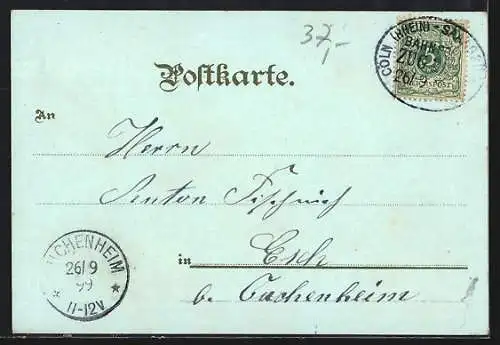 37,-
CÖLN (RHEIN) - SA
BAHNP
ZUG
26/9
Postkarte.
An
Herrn
Anton
in Esch
b. Cuchenheim
CHENHEIM
26/9
99
* 11-12V *